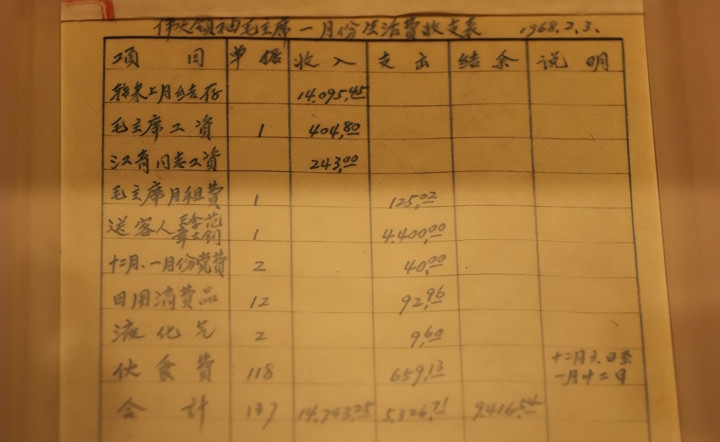 伟大领袖毛主席一月份生活费收支表 1968.2.3.
项目 单据 收入 支出 结余 说明
转来上月结存 14,095.45
毛主席工资 1 404.80
江青同志工资 243.00
毛主席月租费 1 125.02
送客人 1 4,400.00
十二月、一月份党费 2 40.00
日用消费品 12 92.96
液化气 2 9.60
伙食费 118 659.13 十二月六日至一月十二日
合计 137 14,743.25 5,326.71 9,416.54